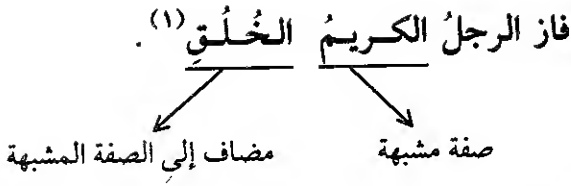 فاز الرجلُ الكريمُ الخُلُقِ(١).
صفة مشبهة
مضاف إلى الصفة المشبهة